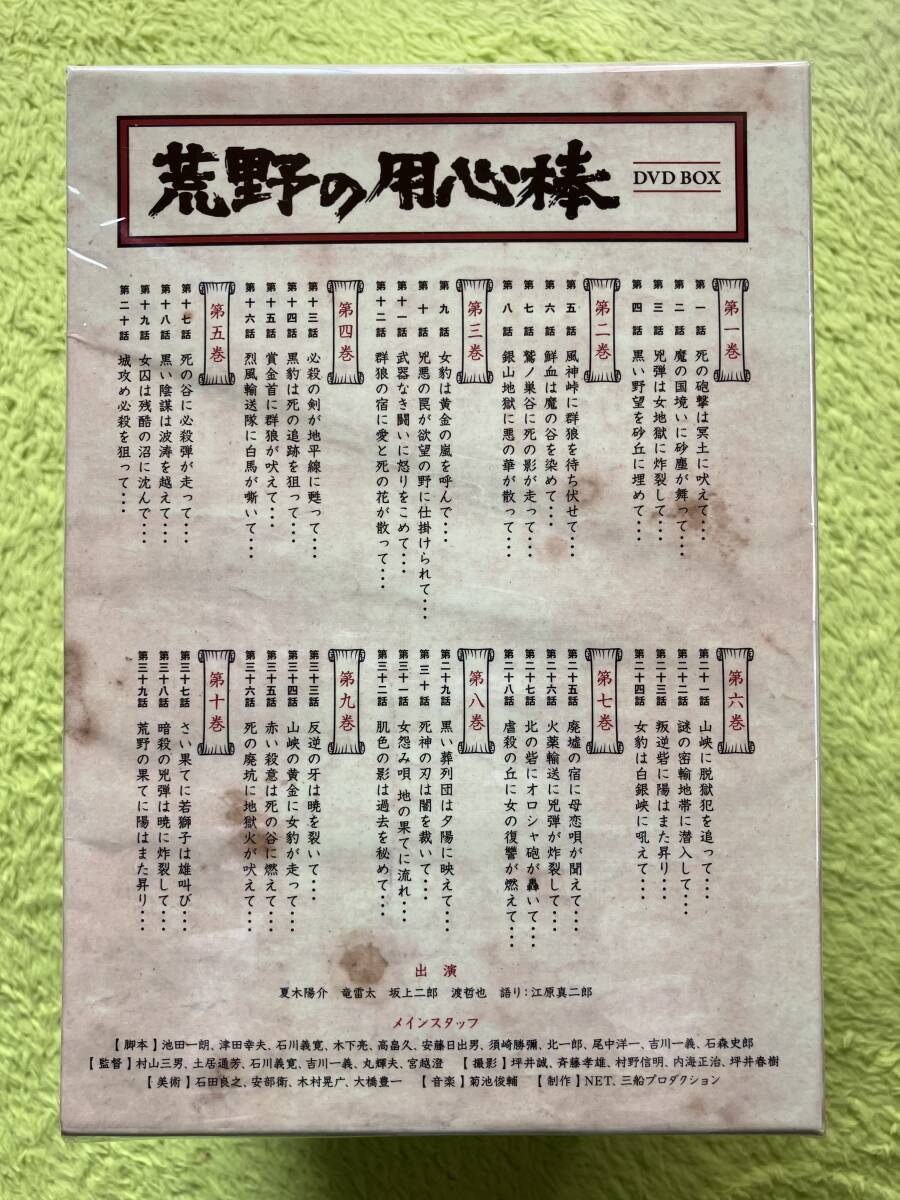 荒野の用心棒
DVD BOX
第一巻
第一話 死の砲撃は冥土に吠えて・・・
第二話 魔の国境いに砂塵が舞って・・・
第三話 兇弾は女地獄に炸裂して・・・
第四話 黒い野望を砂丘に埋めて・・・
第二巻
第五話 風神峠に群狼を待ち伏せて・・・
第六話 鮮血は魔の谷を染めて・・・
第七話 鷲ノ巣谷に死の影が走って・・・
第八話 銀山地獄に悪の華が散って・・・
第三巻
第九話 女豹は黄金の嵐を呼んで・・・
第十話 兇悪の罠が欲望の野に仕掛けられて・・・
第十一話 武器なき闘いに怒りをこめて・・・
第十二話 群狼の宿に愛と死の花が散って・・・
第四巻
第十三話 必殺の剣が地平線に甦って・・・
第十四話 黒豹は死の追跡を狙って・・・
第十五話 賞金首に群狼が吠えて・・・
第十六話 烈風輸送隊に白馬が嘶いて・・・
第五巻
第十七話 死の谷に必殺弾が走って・・・
第十八話 黒い陰謀は波涛を越えて・・・
第十九話 女囚は残酷の沼に沈んで・・・
第二十話 城攻め必殺を狙って・・・
第六巻
第二十一話 山峡に脱獄犯を追って・・・
第二十二話 謎の密輸地帯に潜入して・・・
第二十三話 叛逆砦に陽はまた昇り・・・
第二十四話 女豹は白銀峡に吼えて・・・
第七巻
第二十五話 廃墟の宿に母恋唄が聞えて・・・
第二十六話 火薬輸送に兇弾が炸裂して・・・
第二十七話 北の砦にオロシャ砲が轟いて・・・
第二十八話 虐殺の丘に女の復讐が燃えて・・・
第八巻
第二十九話 黒い葬列団は夕陽に映えて・・・
第三十話 死神の刃は闇を裁いて・・・
第三十一話 女怨み唄 地の果てに流れ・・・
第三十二話 肌色の影は過去を秘めて・・・
第九巻
第三十三話 反逆の牙は暁を裂いて・・・
第三十四話 山峡の黄金に女豹が走って・・・
第三十五話 赤い殺意は死の谷に燃えて・・・
第三十六話 死の廃坑に地獄火が吠えて・・・
第十巻
第三十七話 さい果てに若獅子は雄叫び・・・
第三十八話 暗殺の兇弾は暁に炸裂して・・・
第三十九話 荒野の果てに陽はまた昇り・・・
出 演
夏木陽介 竜雷太 坂上二郎 渡哲也 語り:江原真二郎
メインスタッフ
【脚本】池田一朗、津田幸夫、石川義寛、木下亮、高畠久、安藤日出男、須崎勝彌、北一郎、尾中洋一、吉川一義、石森史郎
【監督】村山三男、土居通芳、石川義寛、吉川一義、丸輝夫、宮越澄 【撮影】坪井誠、斉藤孝雄、村野信明、内海正治、坪井春樹
【美術】石田良之、安部衛、木村晃广、大橋豊一 【音楽】菊池俊輔 【制作】NET、三船プロダクション